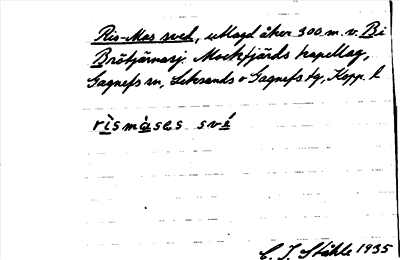 Ris-Mas sved, utlagd åker 300 m. v. Bi
Brötjärnasj. Mockfjärds kapellag,
Gagnefs sn, Leksands o Gagnefs tg, Kopp. l
rìsmàses své
E. I. Ståhle 1935